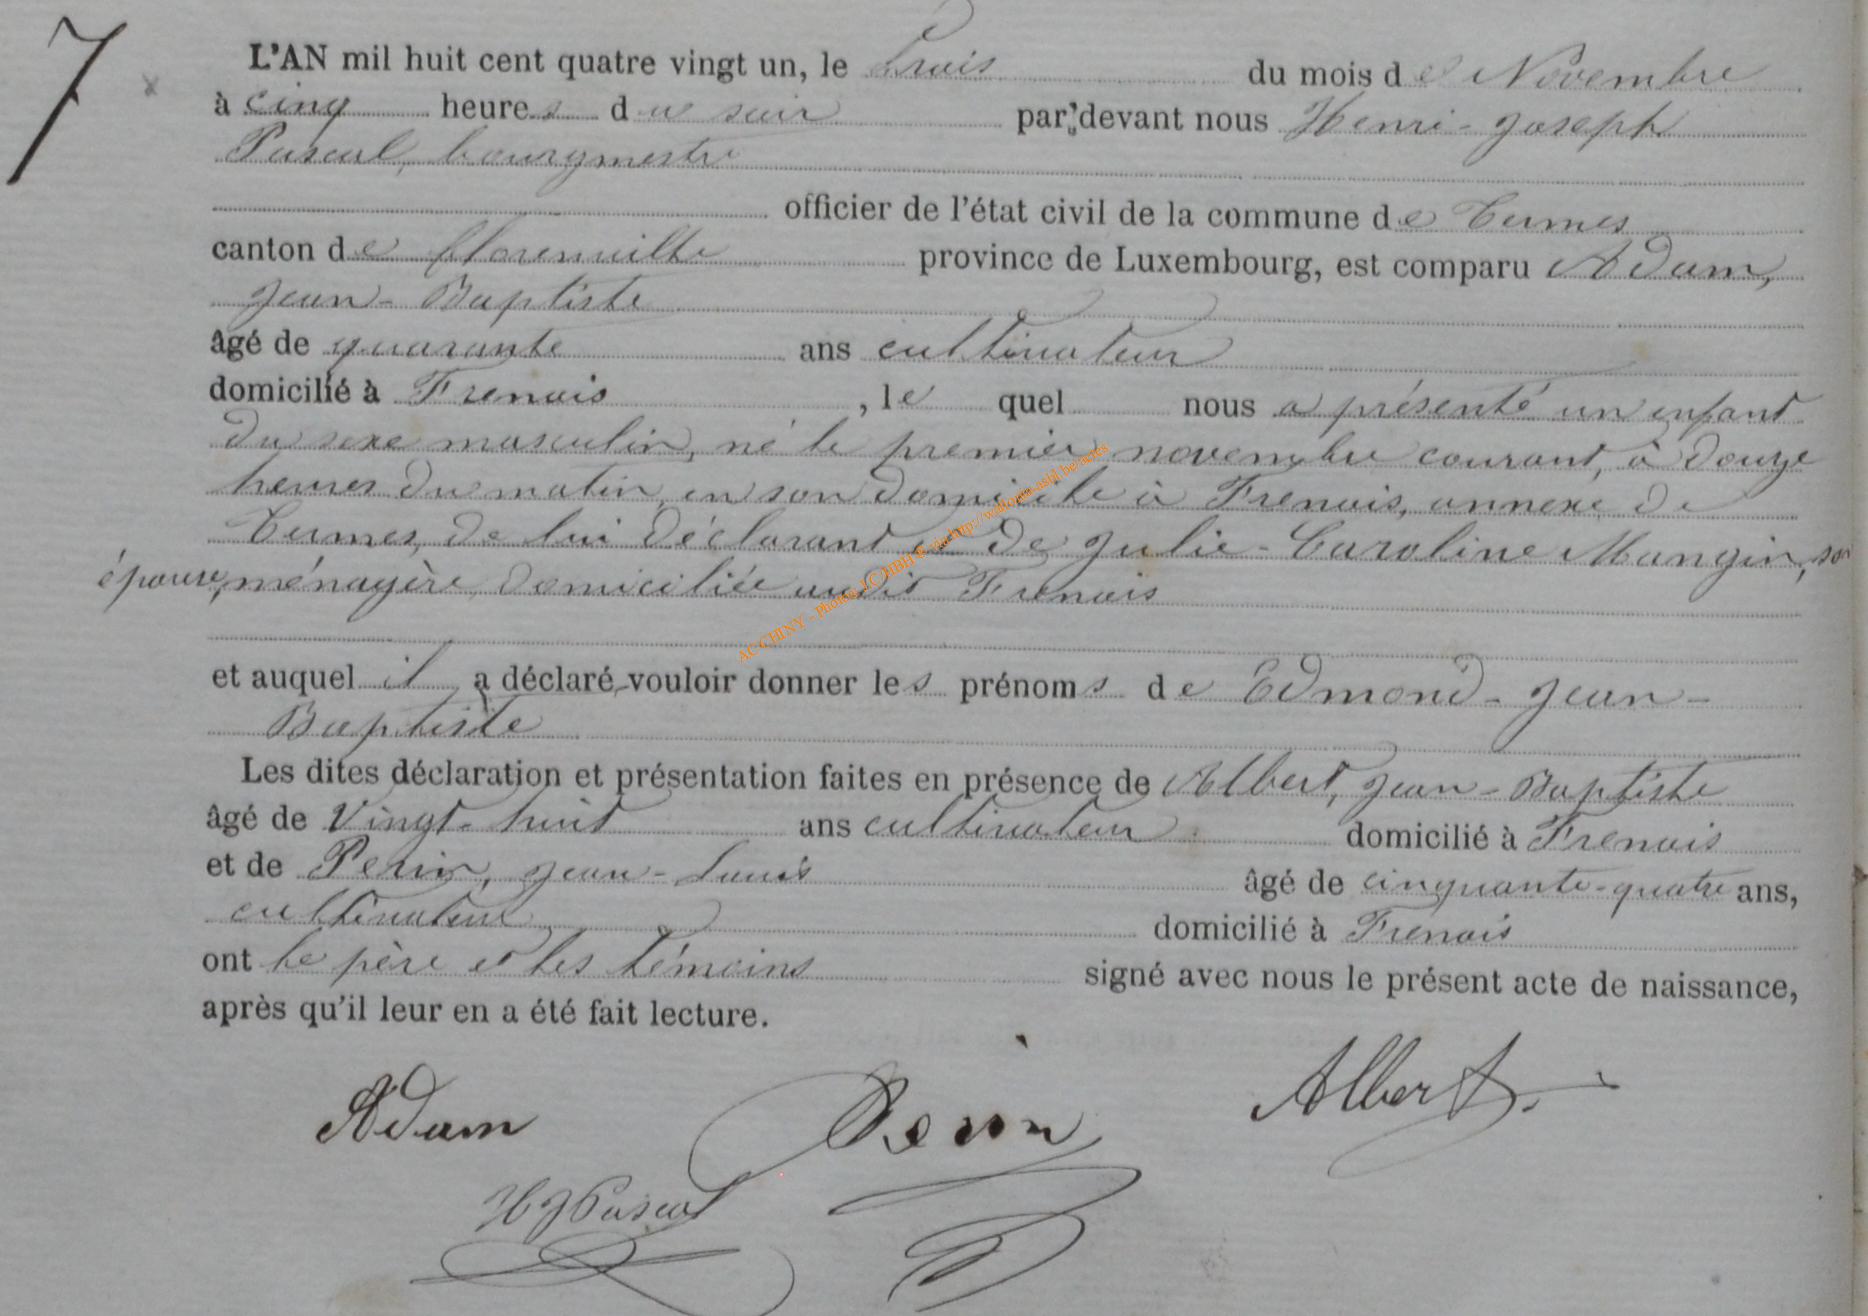 7
L'AN mil huit cent quatre vingt un, le trois du mois de Novembre
à cinq heures du soir par devant nous Henri-Joseph
Pascal, bourgmestre
officier de l'état civil de la commune de Termes
canton de florenville province de Luxembourg, est comparu Adam,
Jean-Baptiste
âgé de quarante ans cultivateur
domicilié à Frenois, le quel nous a présenté un enfant
du sexe masculin, né le premier novembre courant, à douze
heures du matin, en son domicile à Frenois, annexe de
Termes, de lui déclarant et de Julie-Caroline Mangin, son
épouse, ménagère, domiciliée audit Frenois
et auquel il a déclaré vouloir donner les prénoms de Edmond-Jean-
Baptiste
Les dites déclaration et présentation faites en présence de Albert, Jean-Baptiste
âgé de Vingt-huit ans cultivateur domicilié à Frenois
et de Perin, Jean-Louis âgé de cinquante-quatre ans,
cultivateur domicilié à Frenois
ont le père et les témoins signé avec nous le présent acte de naissance,
après qu'il leur en a été fait lecture.
Adam Perin Albert
HJPascal